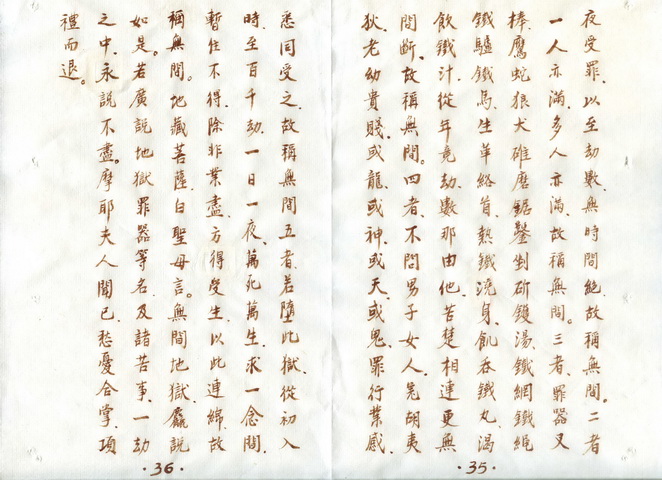 夜受罪、以至劫數、無時間絕、故稱無間。二者
一人亦滿、多人亦滿、故稱無間。三者、罪器叉
棒、鷹蛇狼犬、碓磨鋸鑿、剉斫鑊湯、鐵網鐵繩、
鐵驢鐵馬、生革絡首、熱鐵澆身、飢吞鐵丸、渴
飲鐵汁、從年竟劫、數那由他、苦楚相連、更無
間斷、故稱無間。四者、不問男子女人、羌胡夷
狄、老幼貴賤、或龍或神、或天或鬼、罪行業感、
·35·
悉同受之、故稱無間。五者、若墮此獄、從初入
時、至百千劫、一日一夜、萬死萬生、求一念間、
暫住不得、除非業盡、方得受生、以此連綿、故
稱無間。地藏菩薩白聖母言。無間地獄、麤說
如是。若廣說地獄罪器等名、及諸苦事、一劫
之中、永說不盡。摩耶夫人聞已、愁憂合掌、頂
禮而退。
·36·